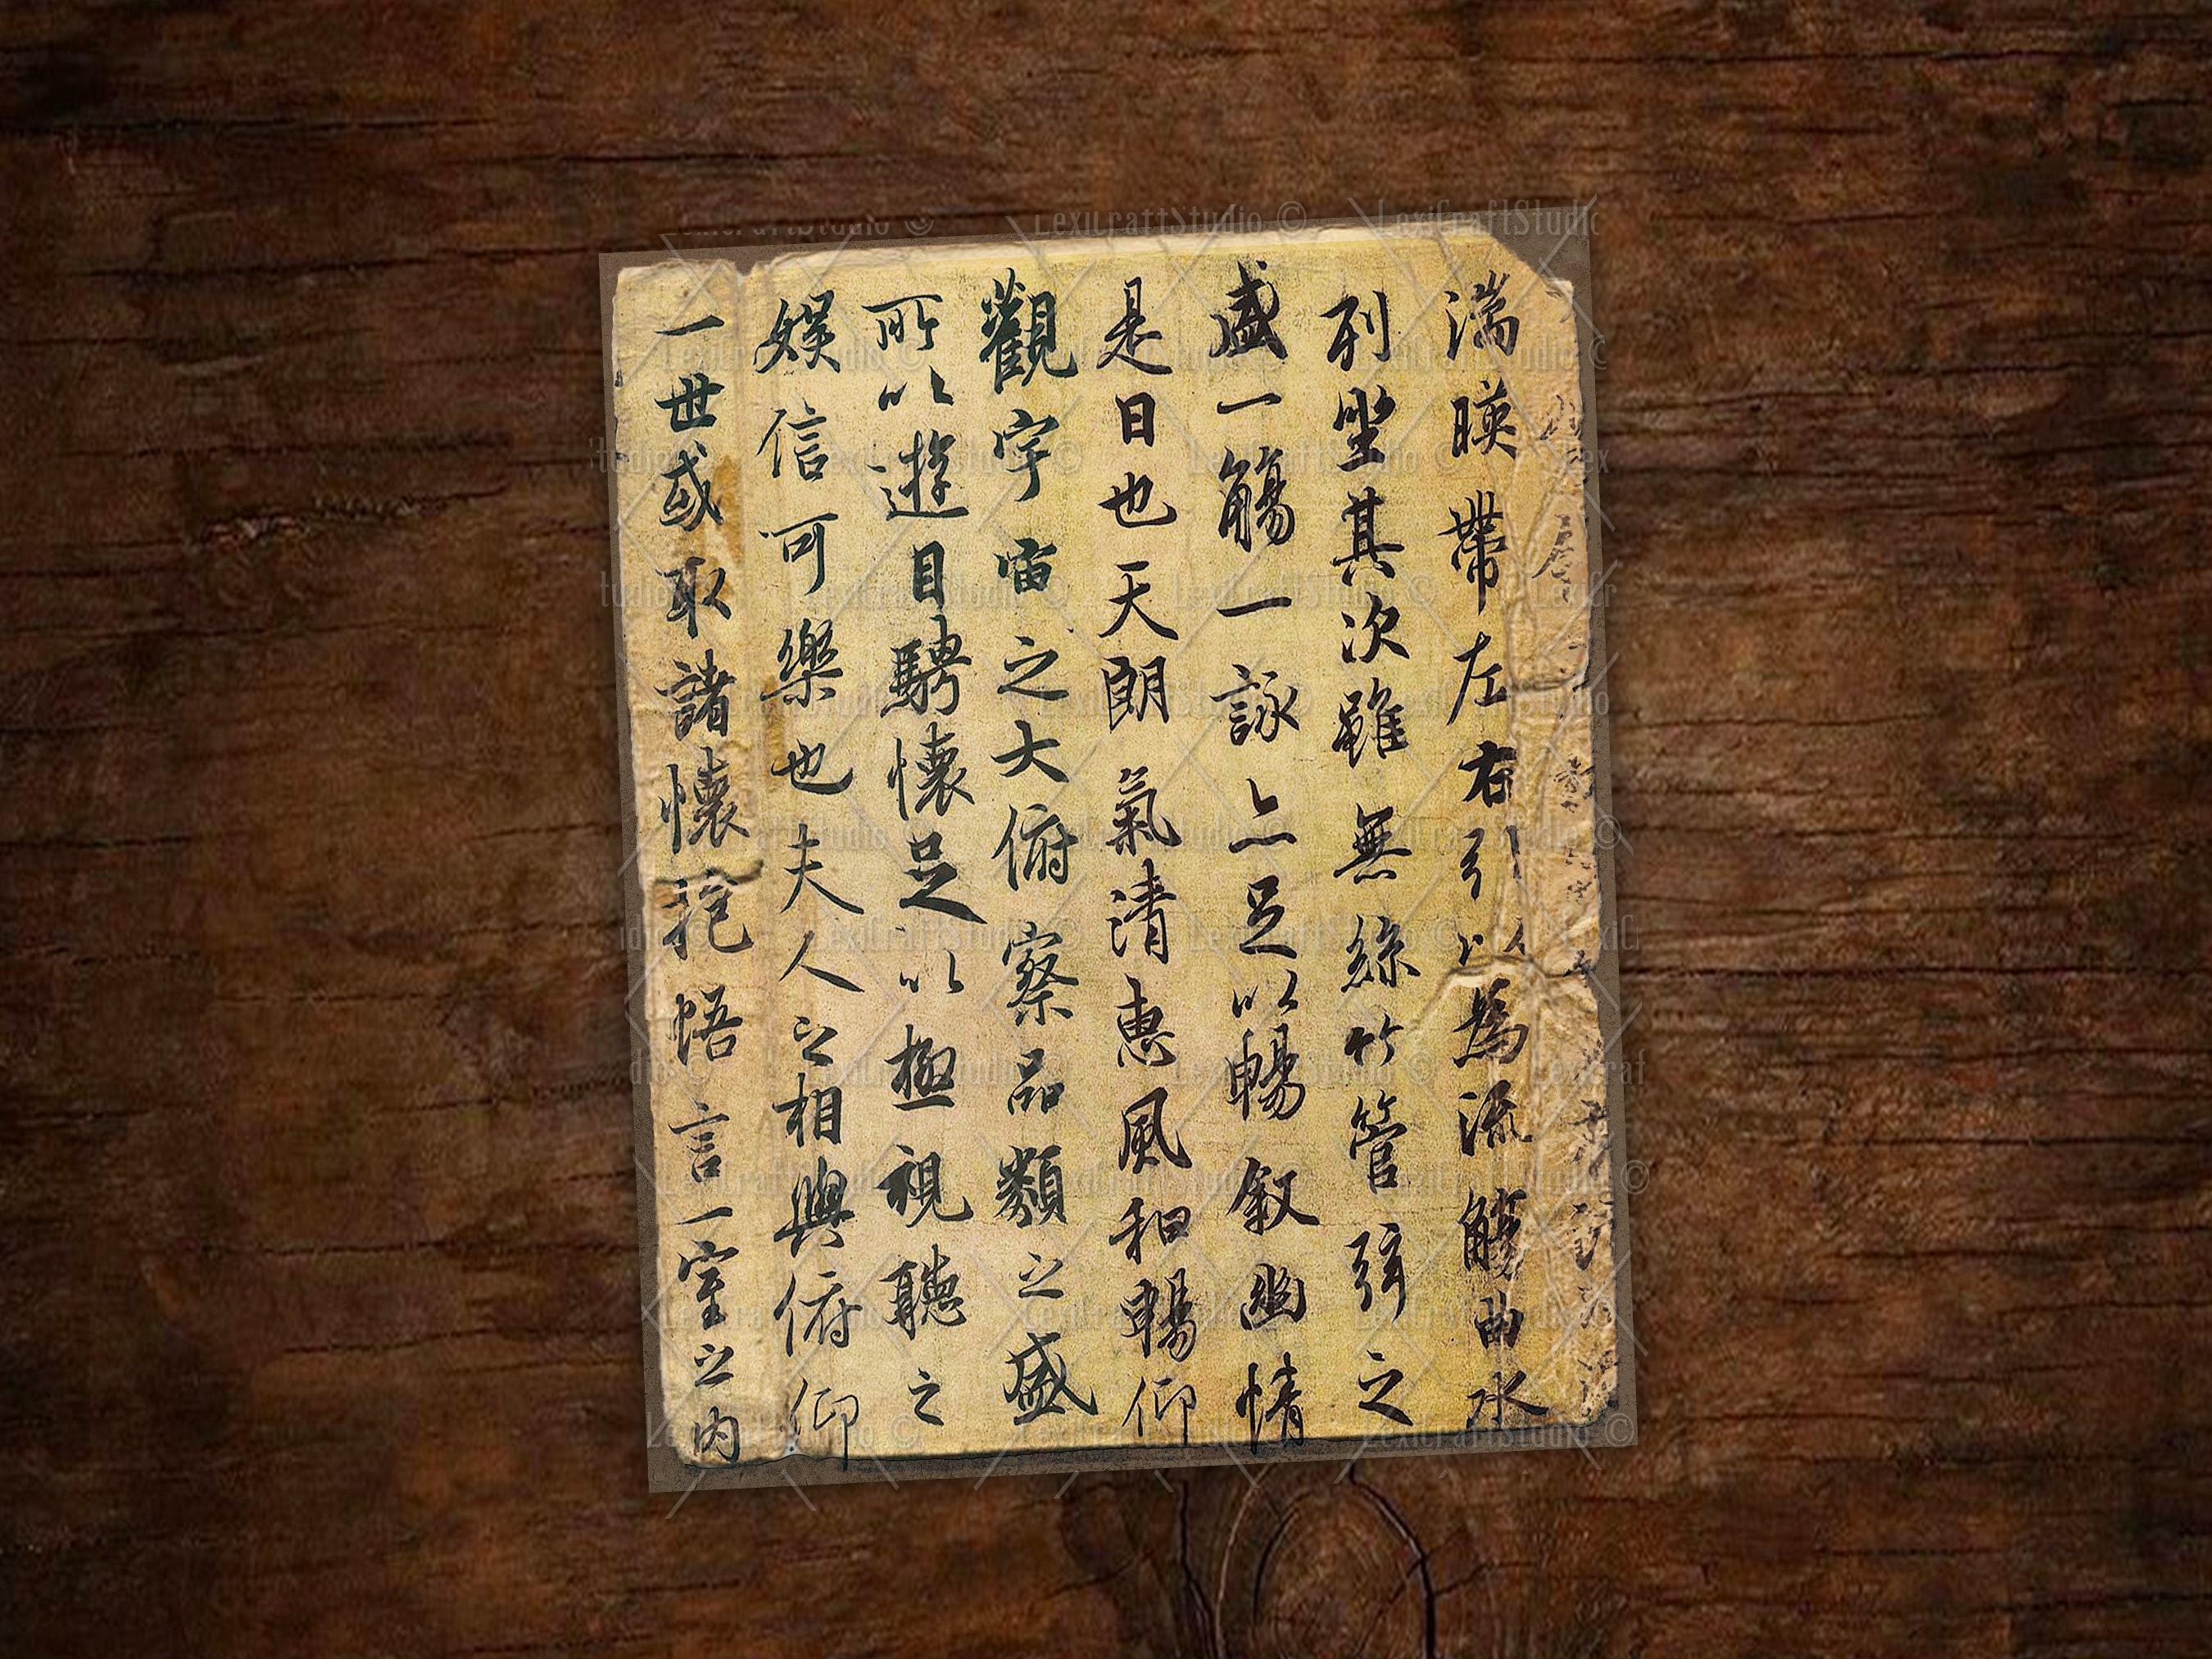 湍暎帶左右引以為流觴曲水
列坐其次雖無絲竹管弦之
盛一觴一詠亦足以暢叙幽情
是日也天朗氣清惠風和暢仰
觀宇宙之大俯察品類之盛
所以遊目騁懷足以極視聽之
娛信可樂也夫人之相與俯仰
一世或取諸懷抱悟言一室之內
LexiCraftStudio ©